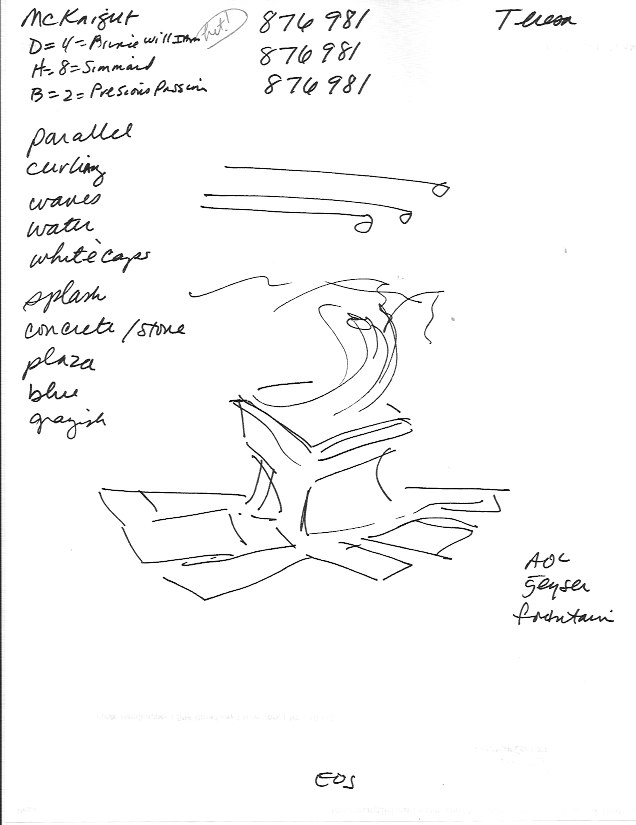 McKnight
D=4=Birnie Will Ihm
hit!
H=8=Simmard
B=2=Presious Passion
876 981
876 981
876 981
Teresa
parallel
curling
waves
water
whitecaps
splash
concrete/stone
plaza
blue
grayish
AOL
geyser
fountain
EOS